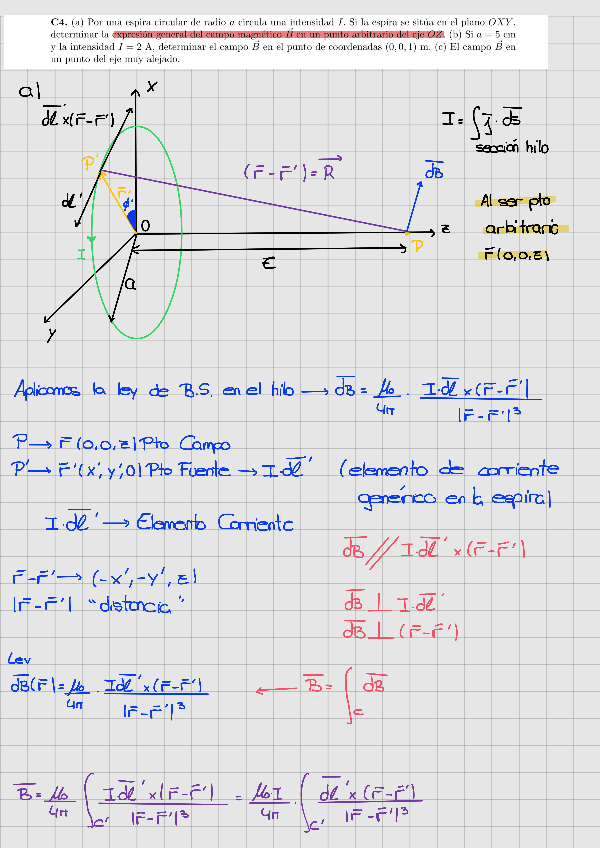 C4. (a) Por una espira circular de radio a circula una intensidad I. Si la espira se sitúa en el plano OXY,
determinar la expresión general del campo magnético B⃗ en un punto arbitrario del eje OZ. (b) Si a = 5 cm
y la intensidad I = 2 A, determinar el campo B⃗ en el punto de coordenadas (0, 0, 1) m. (c) El campo B⃗ en
un punto del eje muy alejado.
a)
x
dl' x(r̅-r̅')
I = ∫ J̅ · ds̅
sección hilo
P'
(r̅-r̅') = R⃗
dB̅
r̅'
ϕ'
dl'
O
z
P
I
z
a
y
Al ser pto
arbitrario
r̅(0,0,z)
Aplicamos la ley de B.S. en el hilo → dB̅ = μ₀/4π · I·dl̅ x(r̅-r̅')/|r̅-r̅'|³
P → r̅(0,0,z) Pto Campo
P' → r̅'(x',y',0) Pto Fuente → I·dl̅' (elemento de corriente
genérico en la espira)
I·dl̅' → Elemento Corriente
dB̅ // I·dl̅' x(r̅-r̅')
r̅-r̅' → (-x',-y',z)
dB̅ ⊥ I·dl̅'
|r̅-r̅'| "distancia"
dB̅ ⊥ (r̅-r̅')
Ley
dB̅(r̅) = μ₀/4π · Idl̅' x(r̅-r̅')/|r̅-r̅'|³ ← B̅ = ∫c dB̅
B̅ = μ₀/4π ∫c' Idl̅' x(r̅-r̅')/|r̅-r̅'|³ = μ₀I/4π · ∫c' dl̅' x (r̅-r̅')/|r̅-r̅'|³